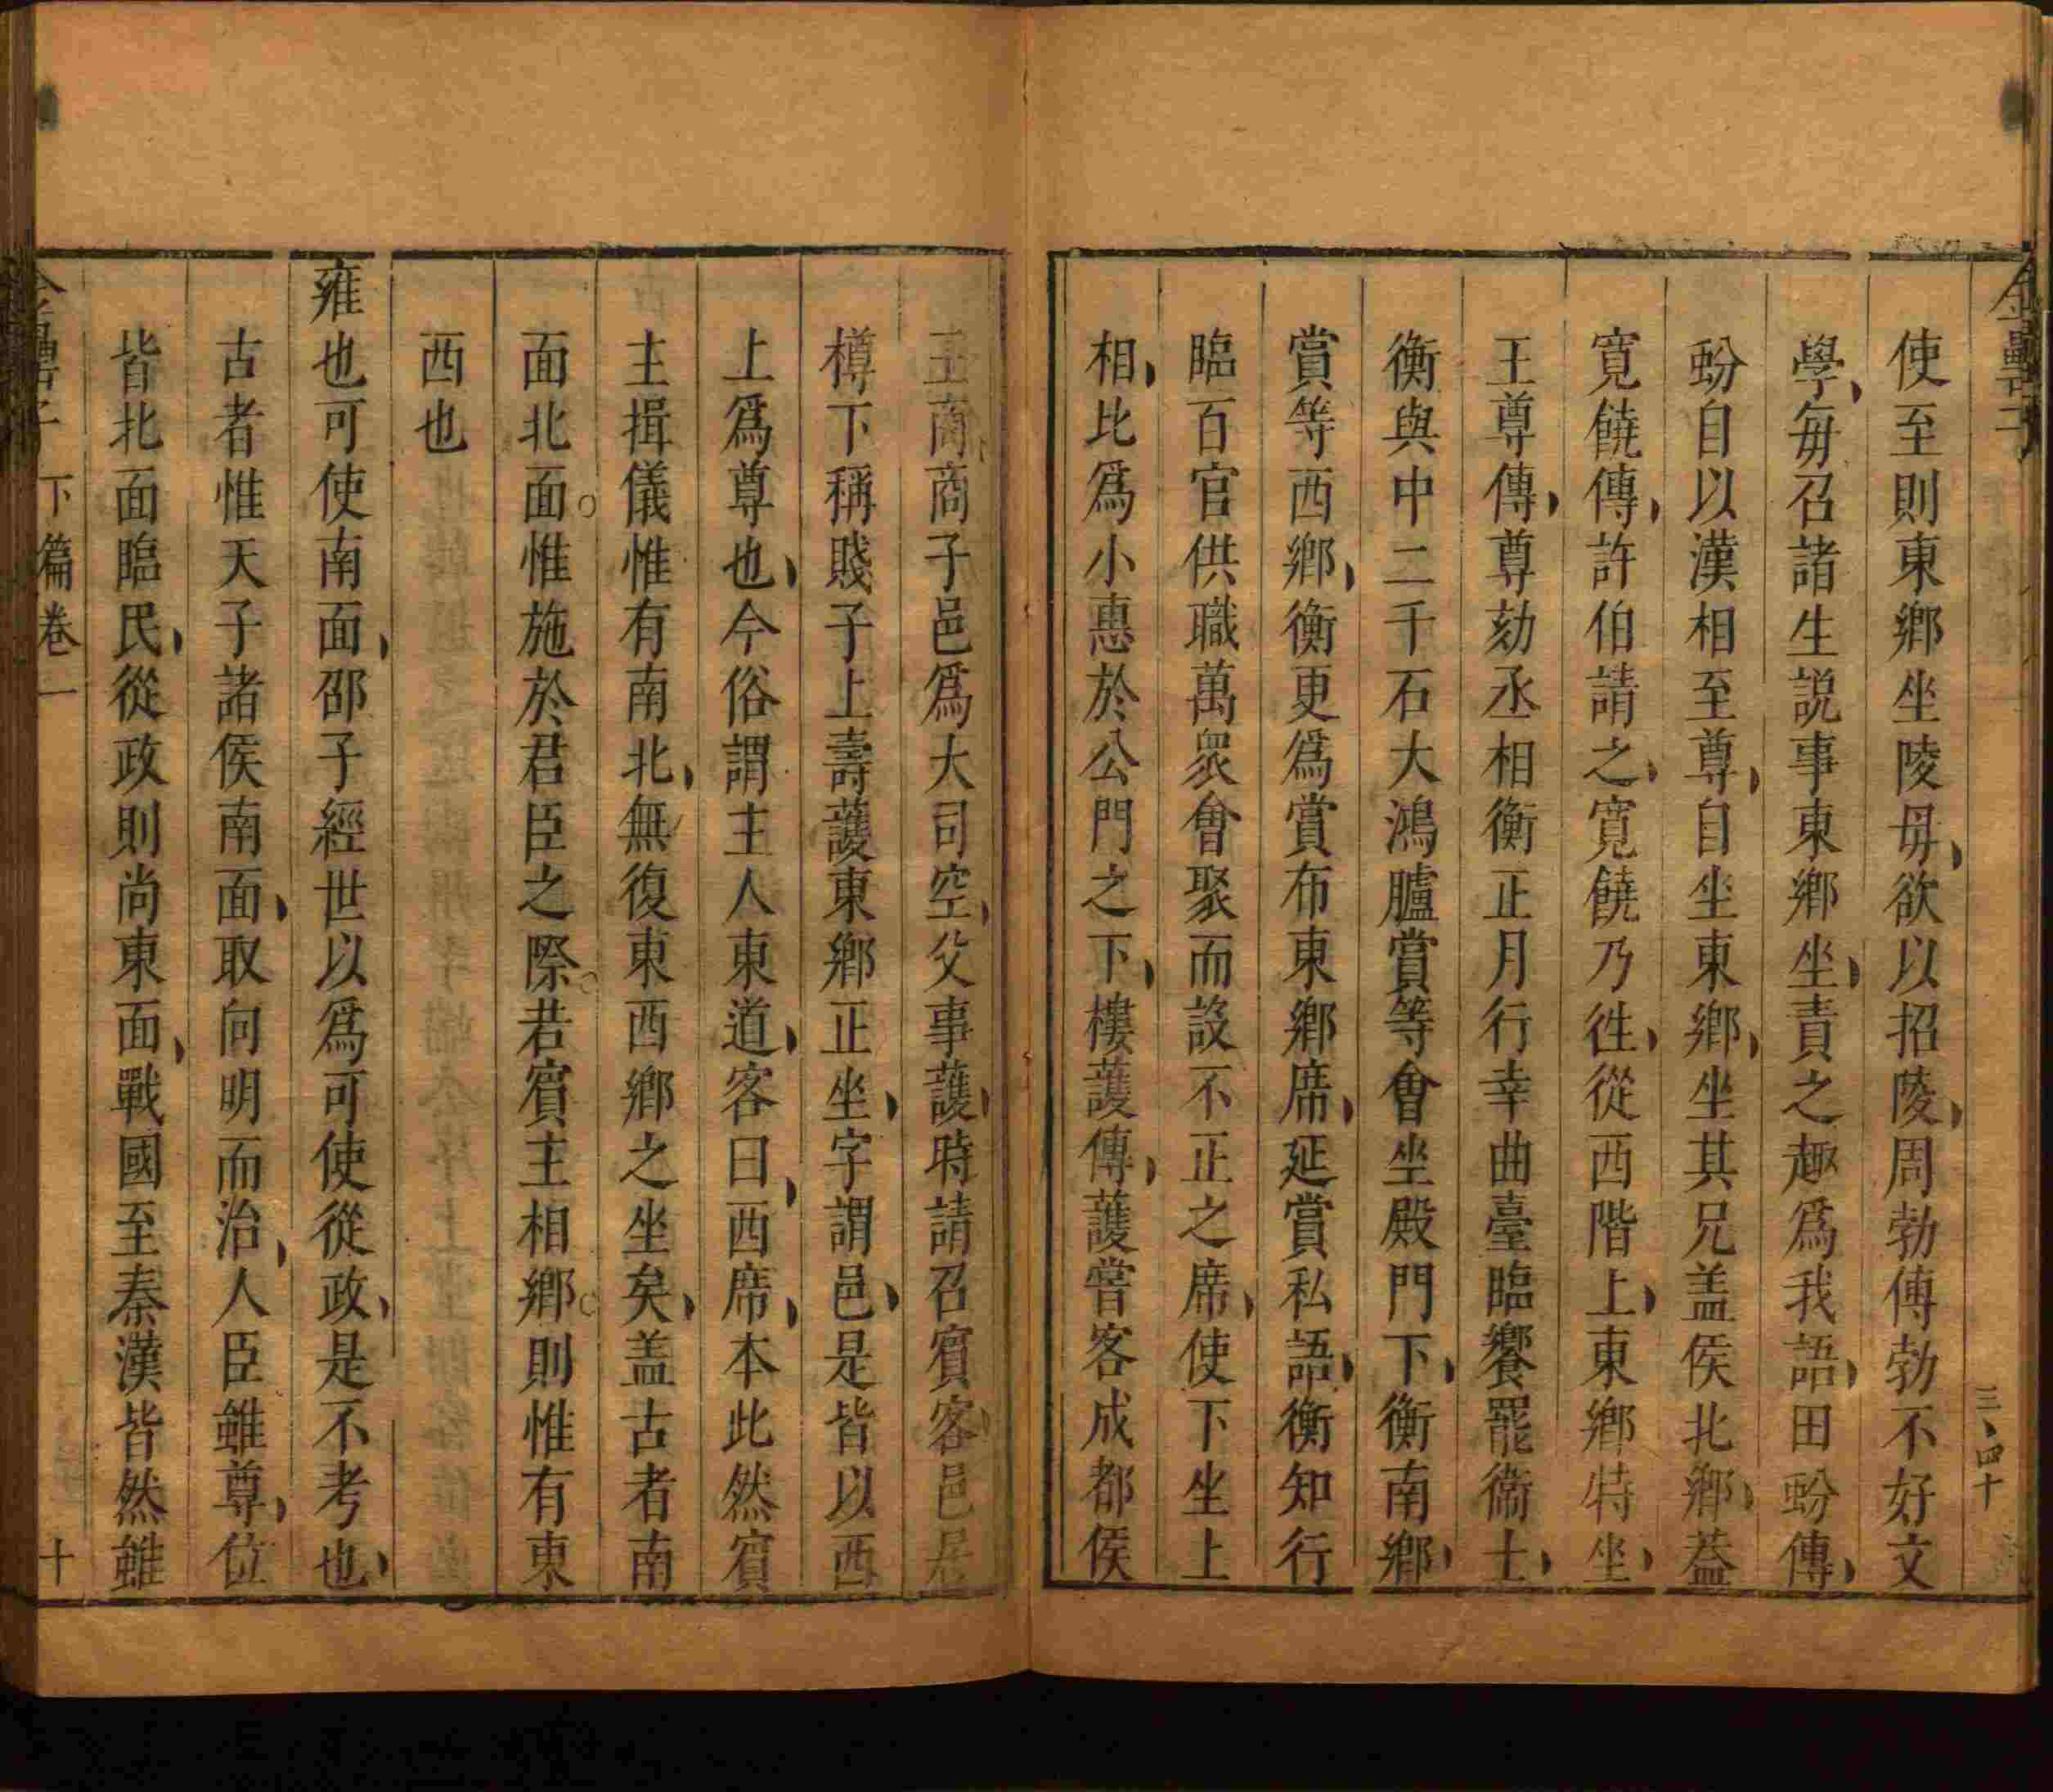 金罍子
三、四十
使至則東鄉坐陵母欲以招陵周勃傳勃不好文
學每召諸生説事東鄉坐責之趣爲我語田蚡傳
蚡自以漢相至尊自坐東鄉坐其兄盖侯北鄉葢
寛饒傳許伯請之寛饒乃徃從西階上東鄉特坐
王尊傳尊劾丞相衡正月行幸曲臺臨饗罷衞士
衡與中二千石大鴻臚賞等會坐殿門下衡南鄉
賞等西鄉衡更爲賞布東鄉席延賞私語衡知行
臨百官供職萬衆會聚而設不正之席使下坐上
相比爲小惠於公門之下樓護傳護嘗客成都侯
王商商子邑爲大司空父事護時請召賓客邑居
樽下稱賤子上壽護東鄉正坐字謂邑是皆以西
上爲尊也今俗謂主人東道客曰西席本此然賓
主揖儀惟有南北無復東西鄉之坐矣盖古者南
面北面惟施於君臣之際若賓主相鄉則惟有東
西也
雍也可使南面邵子經世以爲可使從政是不考也
古者惟天子諸侯南面取向明而治人臣雖尊位
皆北面臨民從政則尚東面戰國至秦漢皆然雖
金罍子 下篇卷一 十